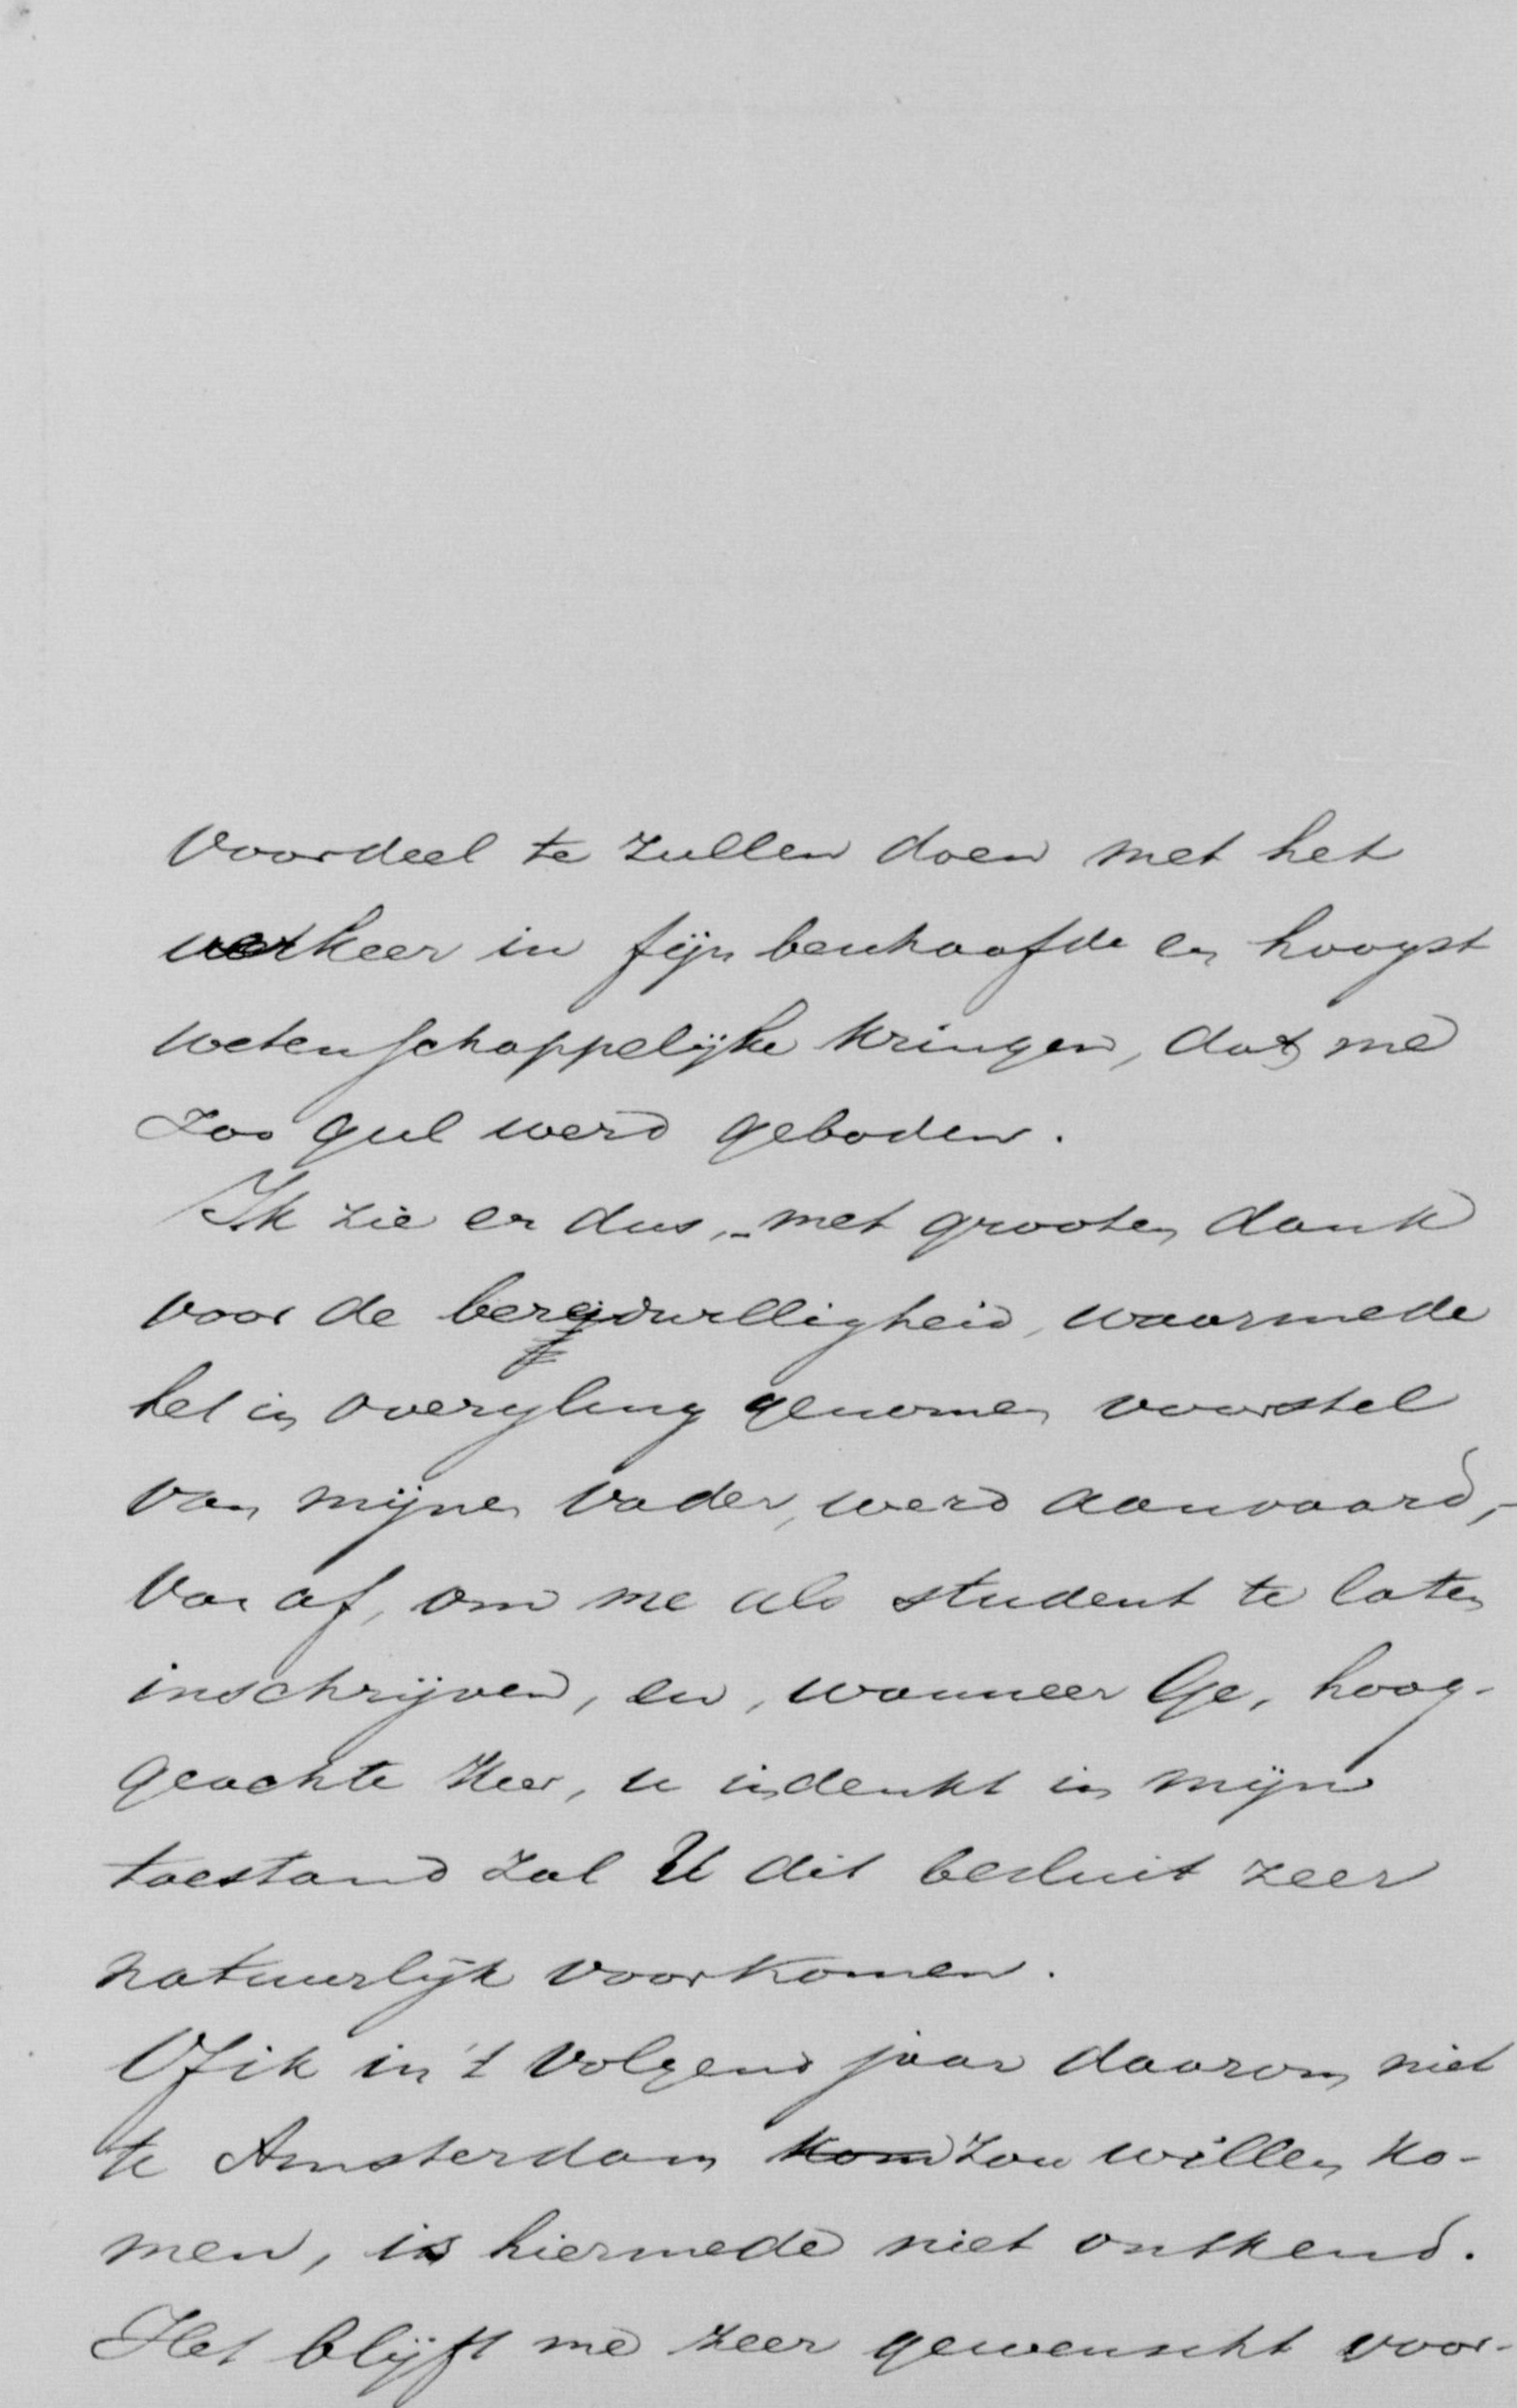 voordeel te zullen doen met het
verkeer in fijn beschaafde en hoogst
wetenschappelijke kringen, dat me
zoo gul werd geboden.
Ik zie er dus, - met grooten dank
voor de bereidwilligheid, waarmede
het in overyling genomen voorstel
van mijnen vader, werd aanvaard, -
van af, om me als student te laten
inschrijven, en, wanneer Ge, hoog-
geachte Heer, u indenkt in mijn
toestand zal U dit besluit zeer
natuurlijk voorkomen.
Of ik in 't volgend jaar daarom niet
te Amsterdam kom zou willen ko-
men, is hiermede niet ontkend.
Het blijft me zeer gewenscht voor-